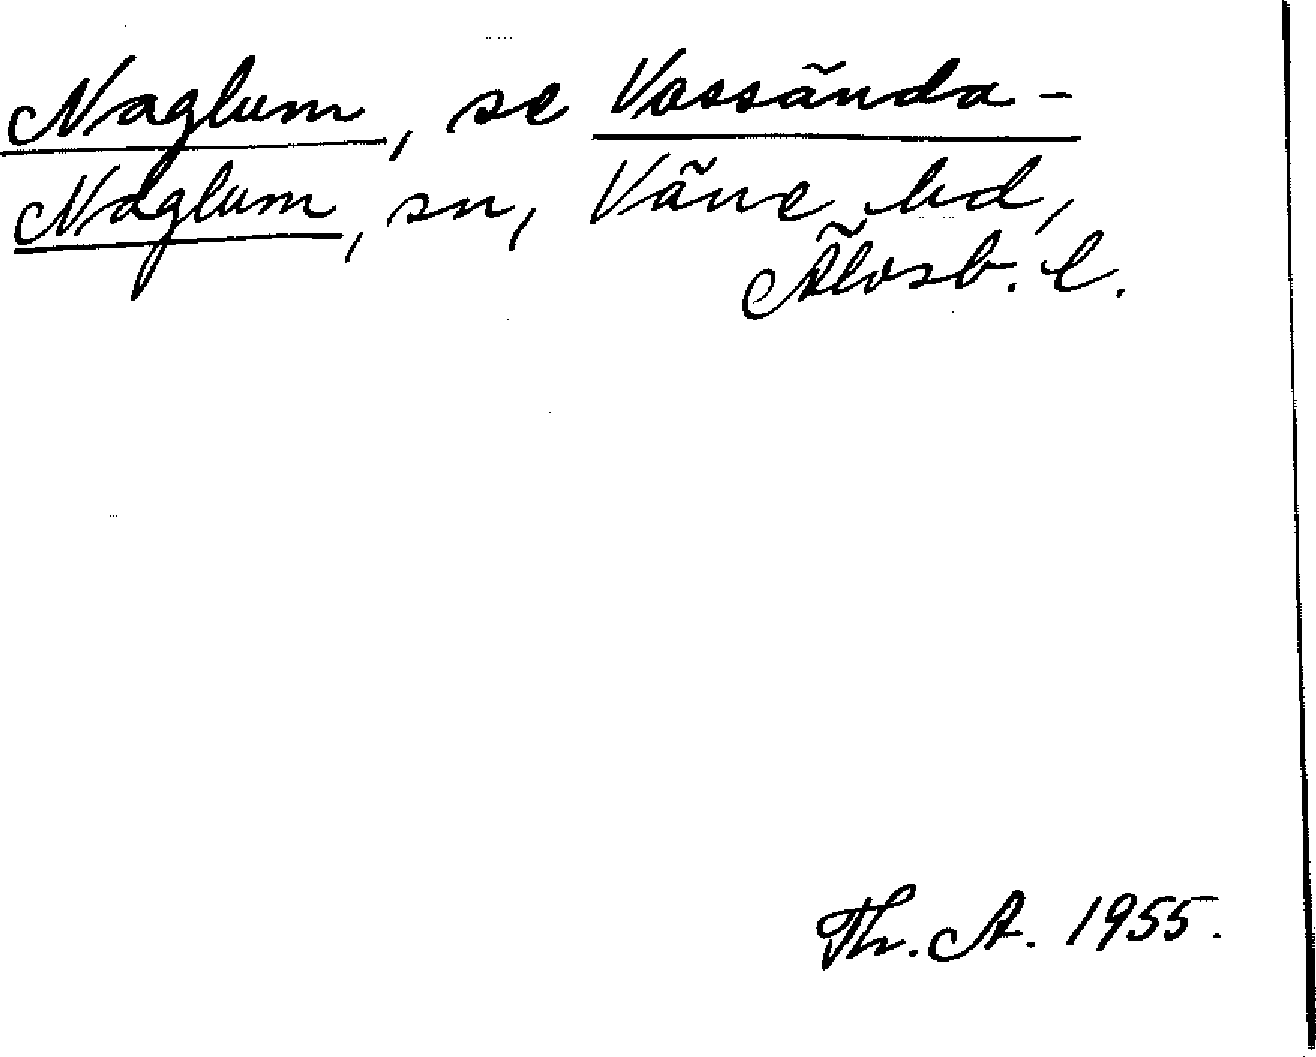 Naglum, se Vassända-
Naglum, sn, Väne hd,
Älvsb. l.
Th. A. 1955.